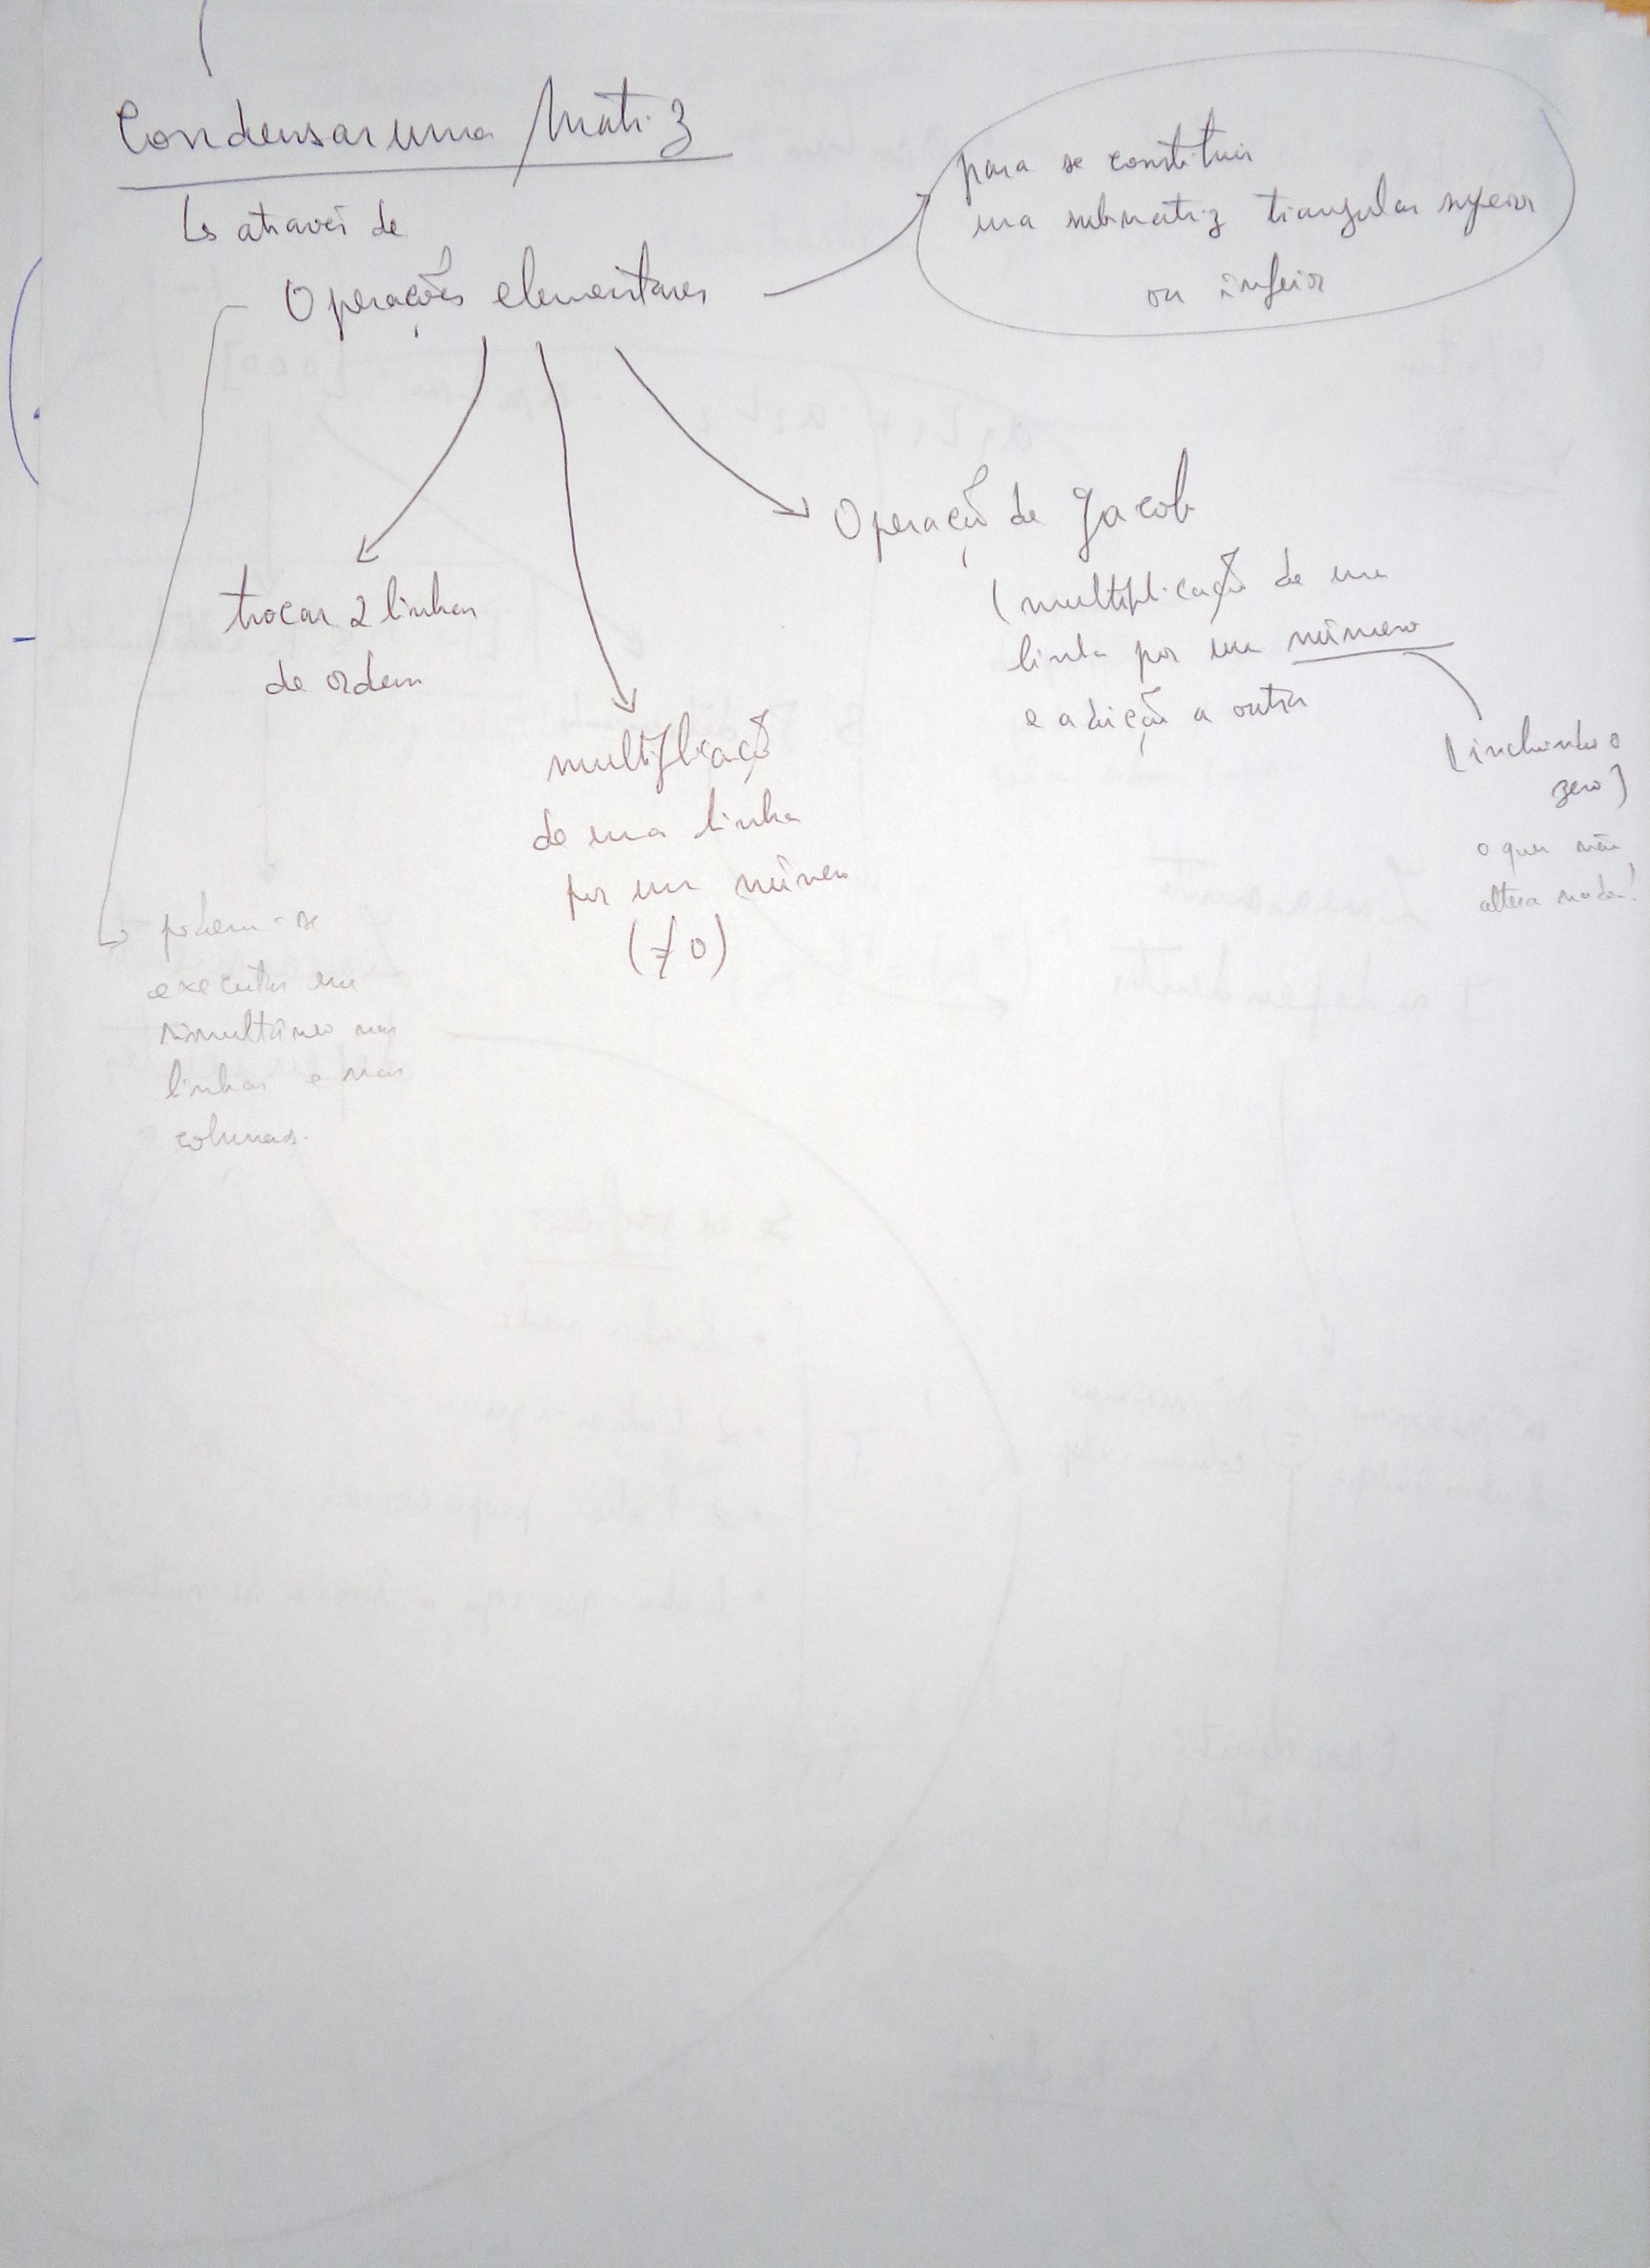 Condensar uma Matriz
↳ através de
Operações elementares
para se constituir
uma submatriz triangular superior
ou inferior
trocar 2 linhas
de ordem
multiplicação
de uma linha
por um número
(≠ 0)
Operação de Jacobi
(multiplicação de uma
linha por um número
e adição a outra
(incluindo o
zero)
o que não
altera nada!
podem-se
executar em
simultâneo nas
linhas e nas
colunas.